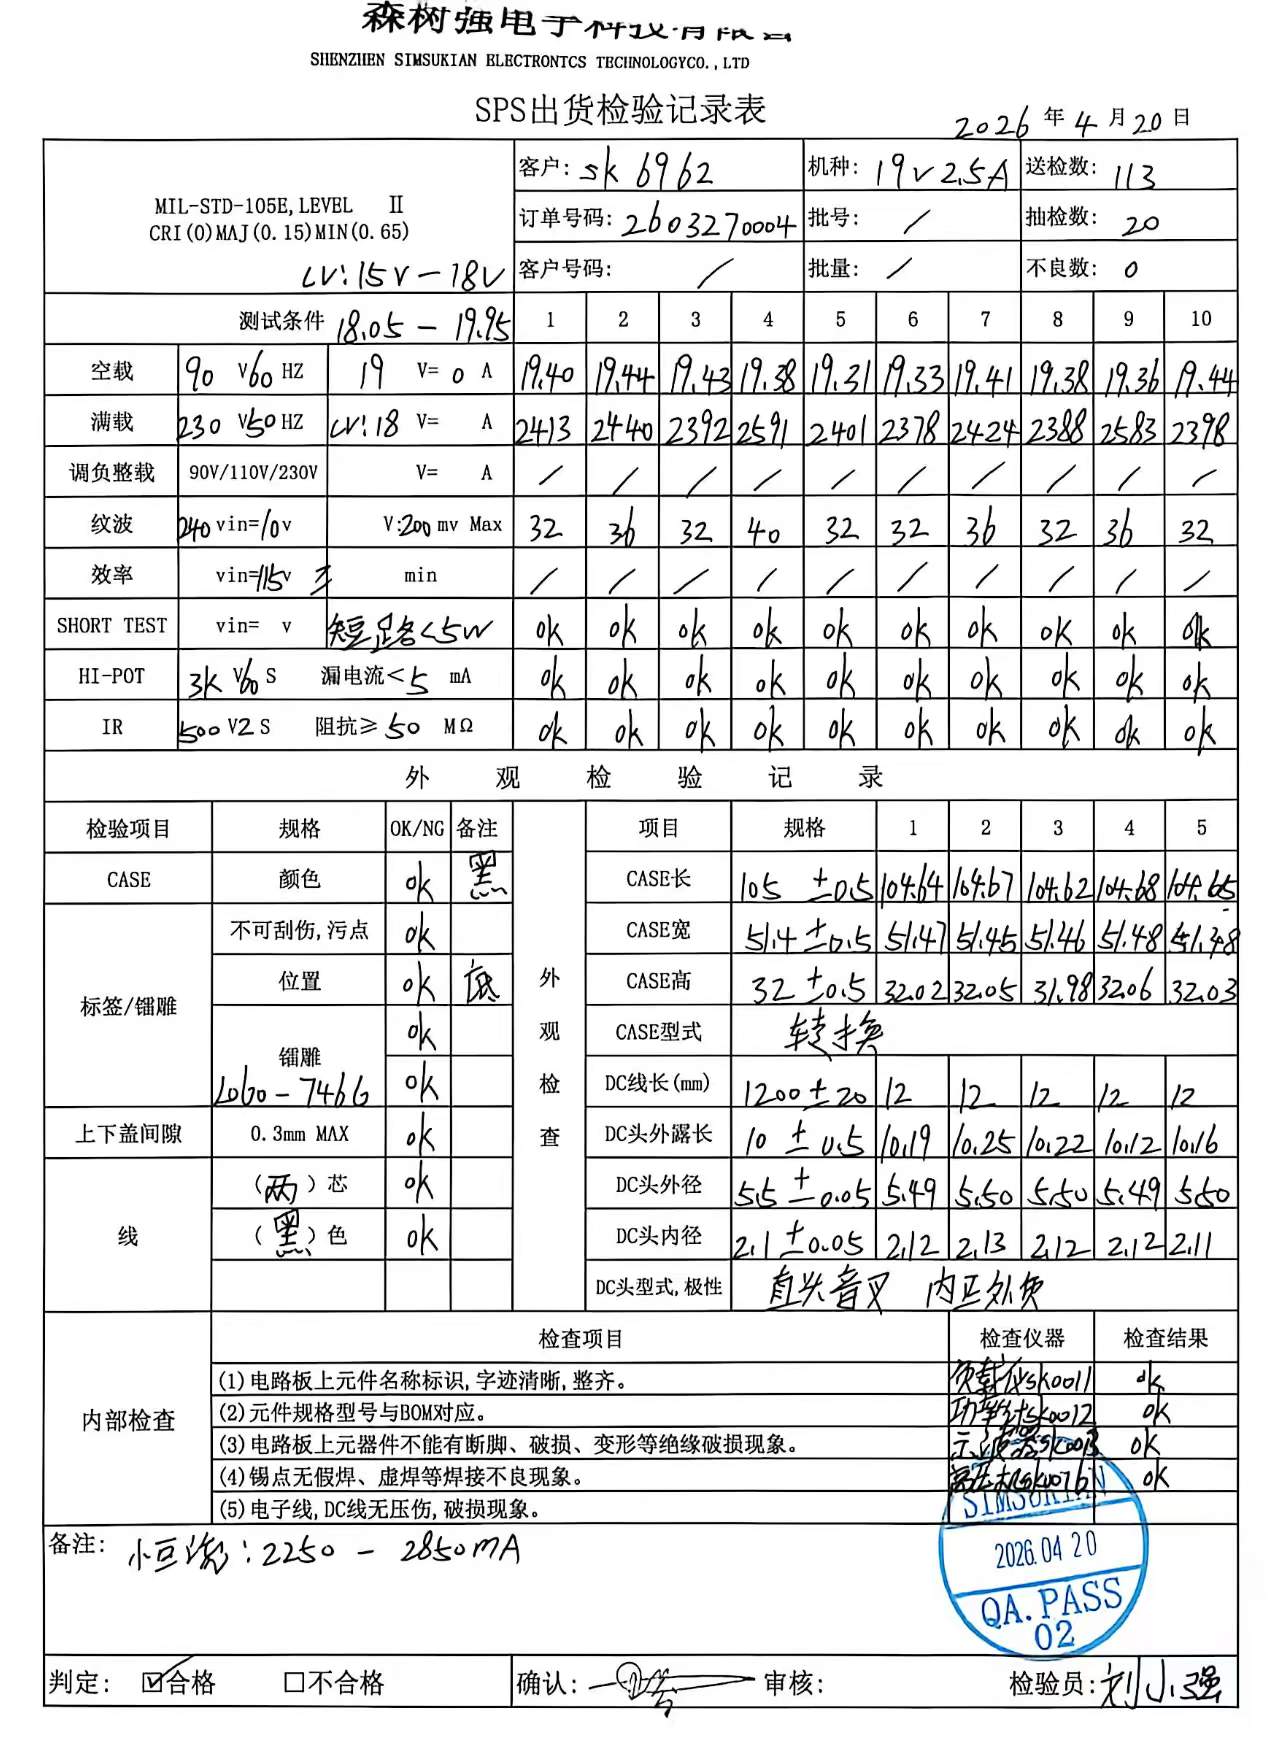 森树强电子科技有限公
SHENZHEN SIMSUKIAN ELECTRONTCS TECHNOLOGYCO.,LTD
SPS出货检验记录表
2026 年 4 月 20 日
MIL-STD-105E, LEVEL Ⅱ
CRI(0)MAJ(0.15)MIN(0.65)
CV:15V-18V
客户: sk 6962 机种: 19V2.5A 送检数: 113
订单号码: 2603270004 批号: / 抽检数: 20
客户号码: / 批量: / 不良数: 0
测试条件 18.05-19.95 1 2 3 4 5 6 7 8 9 10
空载 90 V60 HZ 19 V= 0 A 19.40 19.44 19.43 19.38 19.31 19.33 19.41 19.38 19.36 19.44
满载 230 V50 HZ CV:18 V= A 2413 2440 2392 2591 2401 2378 2424 2388 2583 2398
调负整载 90V/110V/230V V= A / / / / / / / / / /
纹波 240 vin=10v V:200 mv Max 32 36 32 40 32 32 36 32 36 32
效率 vin=115v min / / / / / / / / / /
SHORT TEST vin= v 短路<5W ok ok ok ok ok ok ok ok ok ok
HI-POT 3K V60 S 漏电流<5 mA ok ok ok ok ok ok ok ok ok ok
IR 500 V2 S 阻抗≥50 MΩ ok ok ok ok ok ok ok ok ok ok
外观检验记录
检验项目 规格 OK/NG 备注 项目 规格 1 2 3 4 5
CASE 颜色 ok 黑 CASE长 105 ±0.5 104.64 104.67 104.62 104.68 104.65
标签/镭雕 不可刮伤,污点 ok CASE宽 51.4±0.5 51.47 51.45 51.46 51.48 51.48
位置 ok 底 外观检查 CASE高 32±0.5 32.02 32.05 31.98 32.06 32.03
镭雕 ok CASE型式 转换
LOGO-7466 ok DC线长(mm) 1200±20 12 12 12 12 12
上下盖间隙 0.3mm MAX ok DC头外露长 10 ±0.5 10.19 10.25 10.22 10.12 10.16
线 (两)芯 ok DC头外径 5.5±0.05 5.49 5.50 5.50 5.49 5.50
(黑)色 ok DC头内径 2.1±0.05 2.12 2.13 2.12 2.12 2.11
DC头型式,极性 直头音叉 内正外负
内部检查 检查项目 检查仪器 检查结果
(1)电路板上元件名称标识,字迹清晰,整齐。 负载仪sk0011 ok
(2)元件规格型号与BOM对应。 功率计sk0012 ok
(3)电路板上元器件不能有断脚、破损、变形等绝缘破损现象。 示波器sk0013 ok
(4)锡点无假焊、虚焊等焊接不良现象。 高压机sk0076 ok
(5)电子线,DC线无压伤,破损现象。
SIMSUKIAN
2026.04 20
QA.PASS
02
备注: 2250-2850mA
判定: ☑合格 □不合格 确认: 审核: 检验员: 刘小强